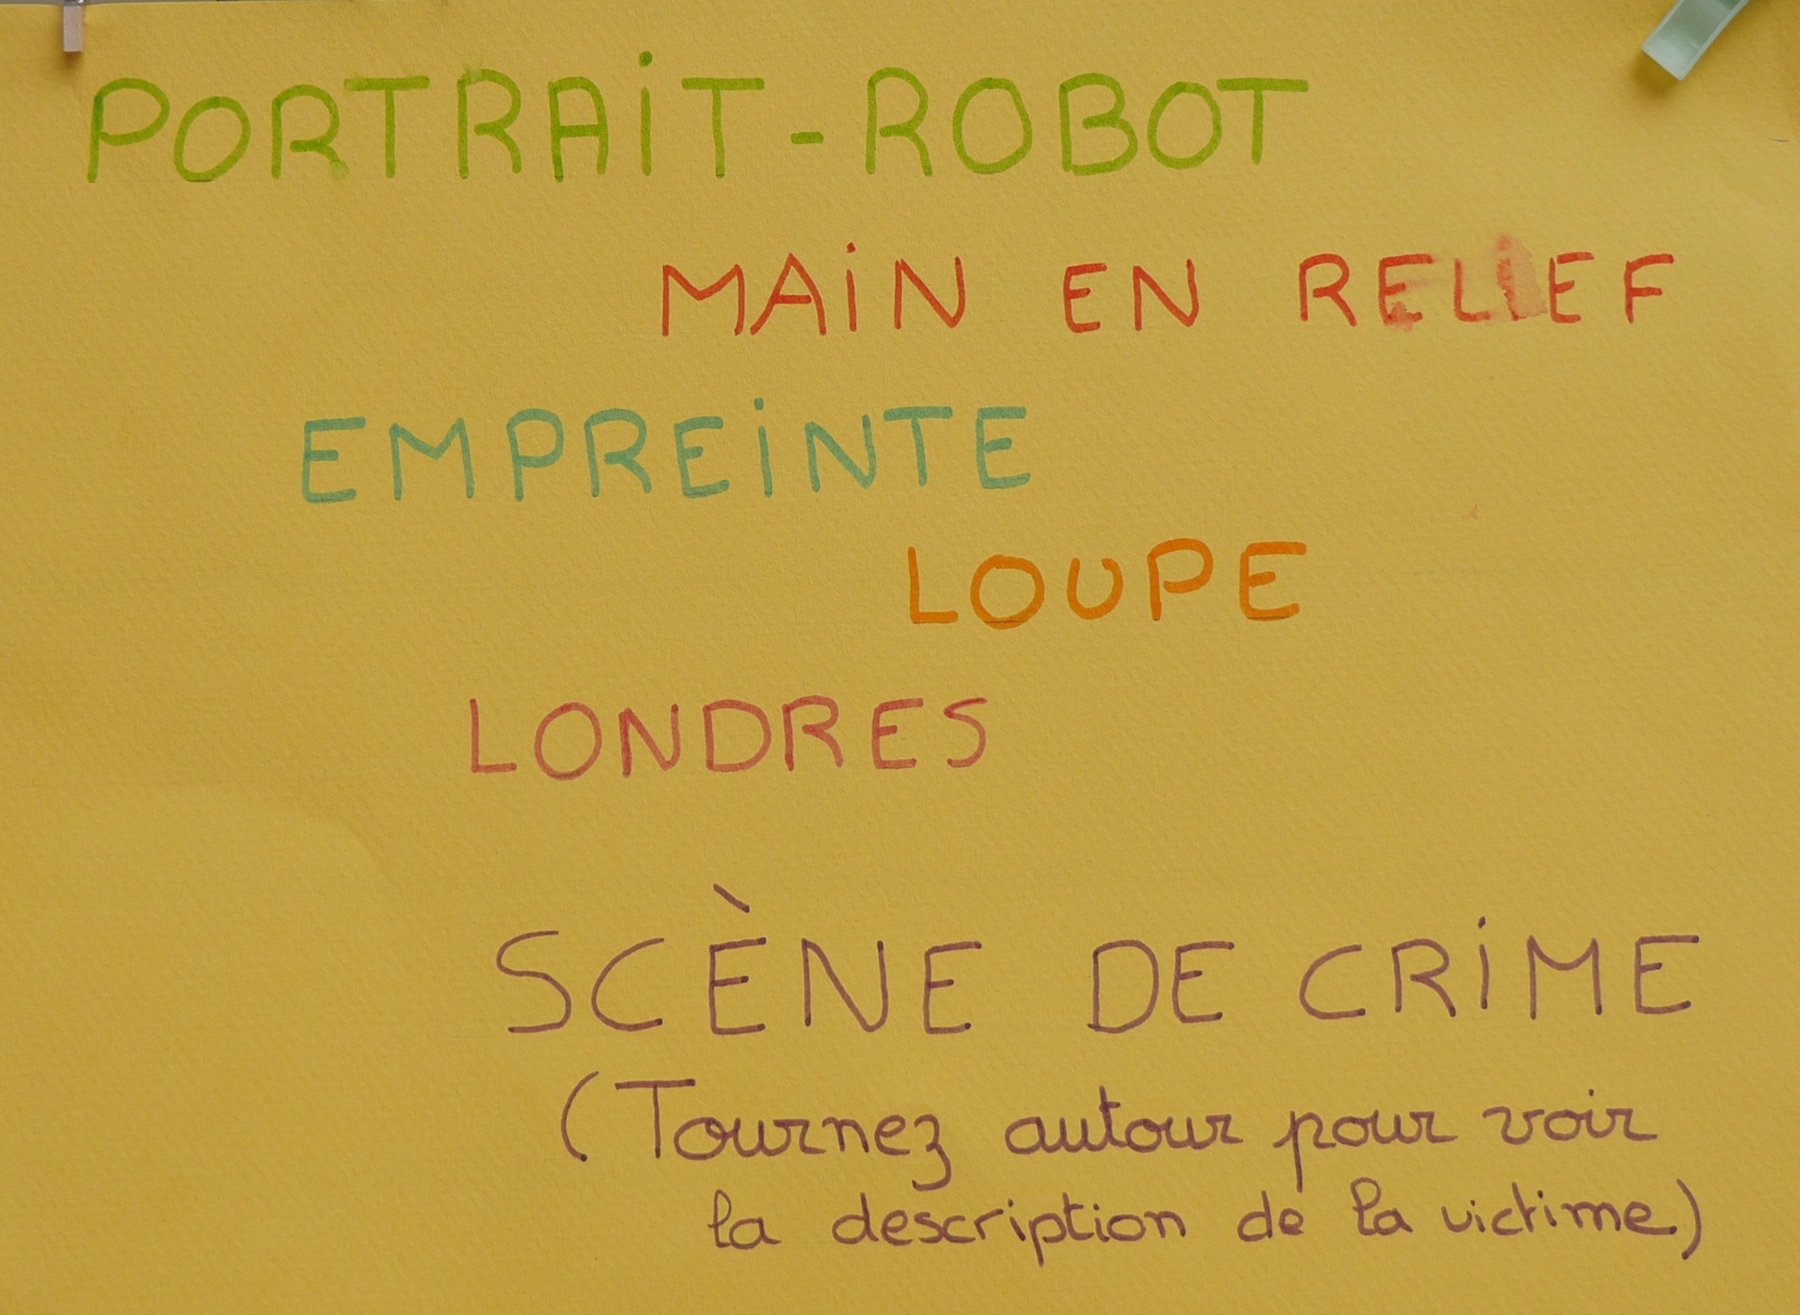 PORTRAiT-ROBOT
MAiN EN RELiEF
EMPREiNTE
LOUPE
LONDRES
SCÈNE DE CRiME
(Tournez autour pour voir
la description de la victime)